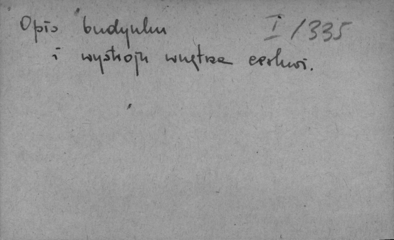 Opis budynku I/335
i wystroju wnętrza cerkwi.